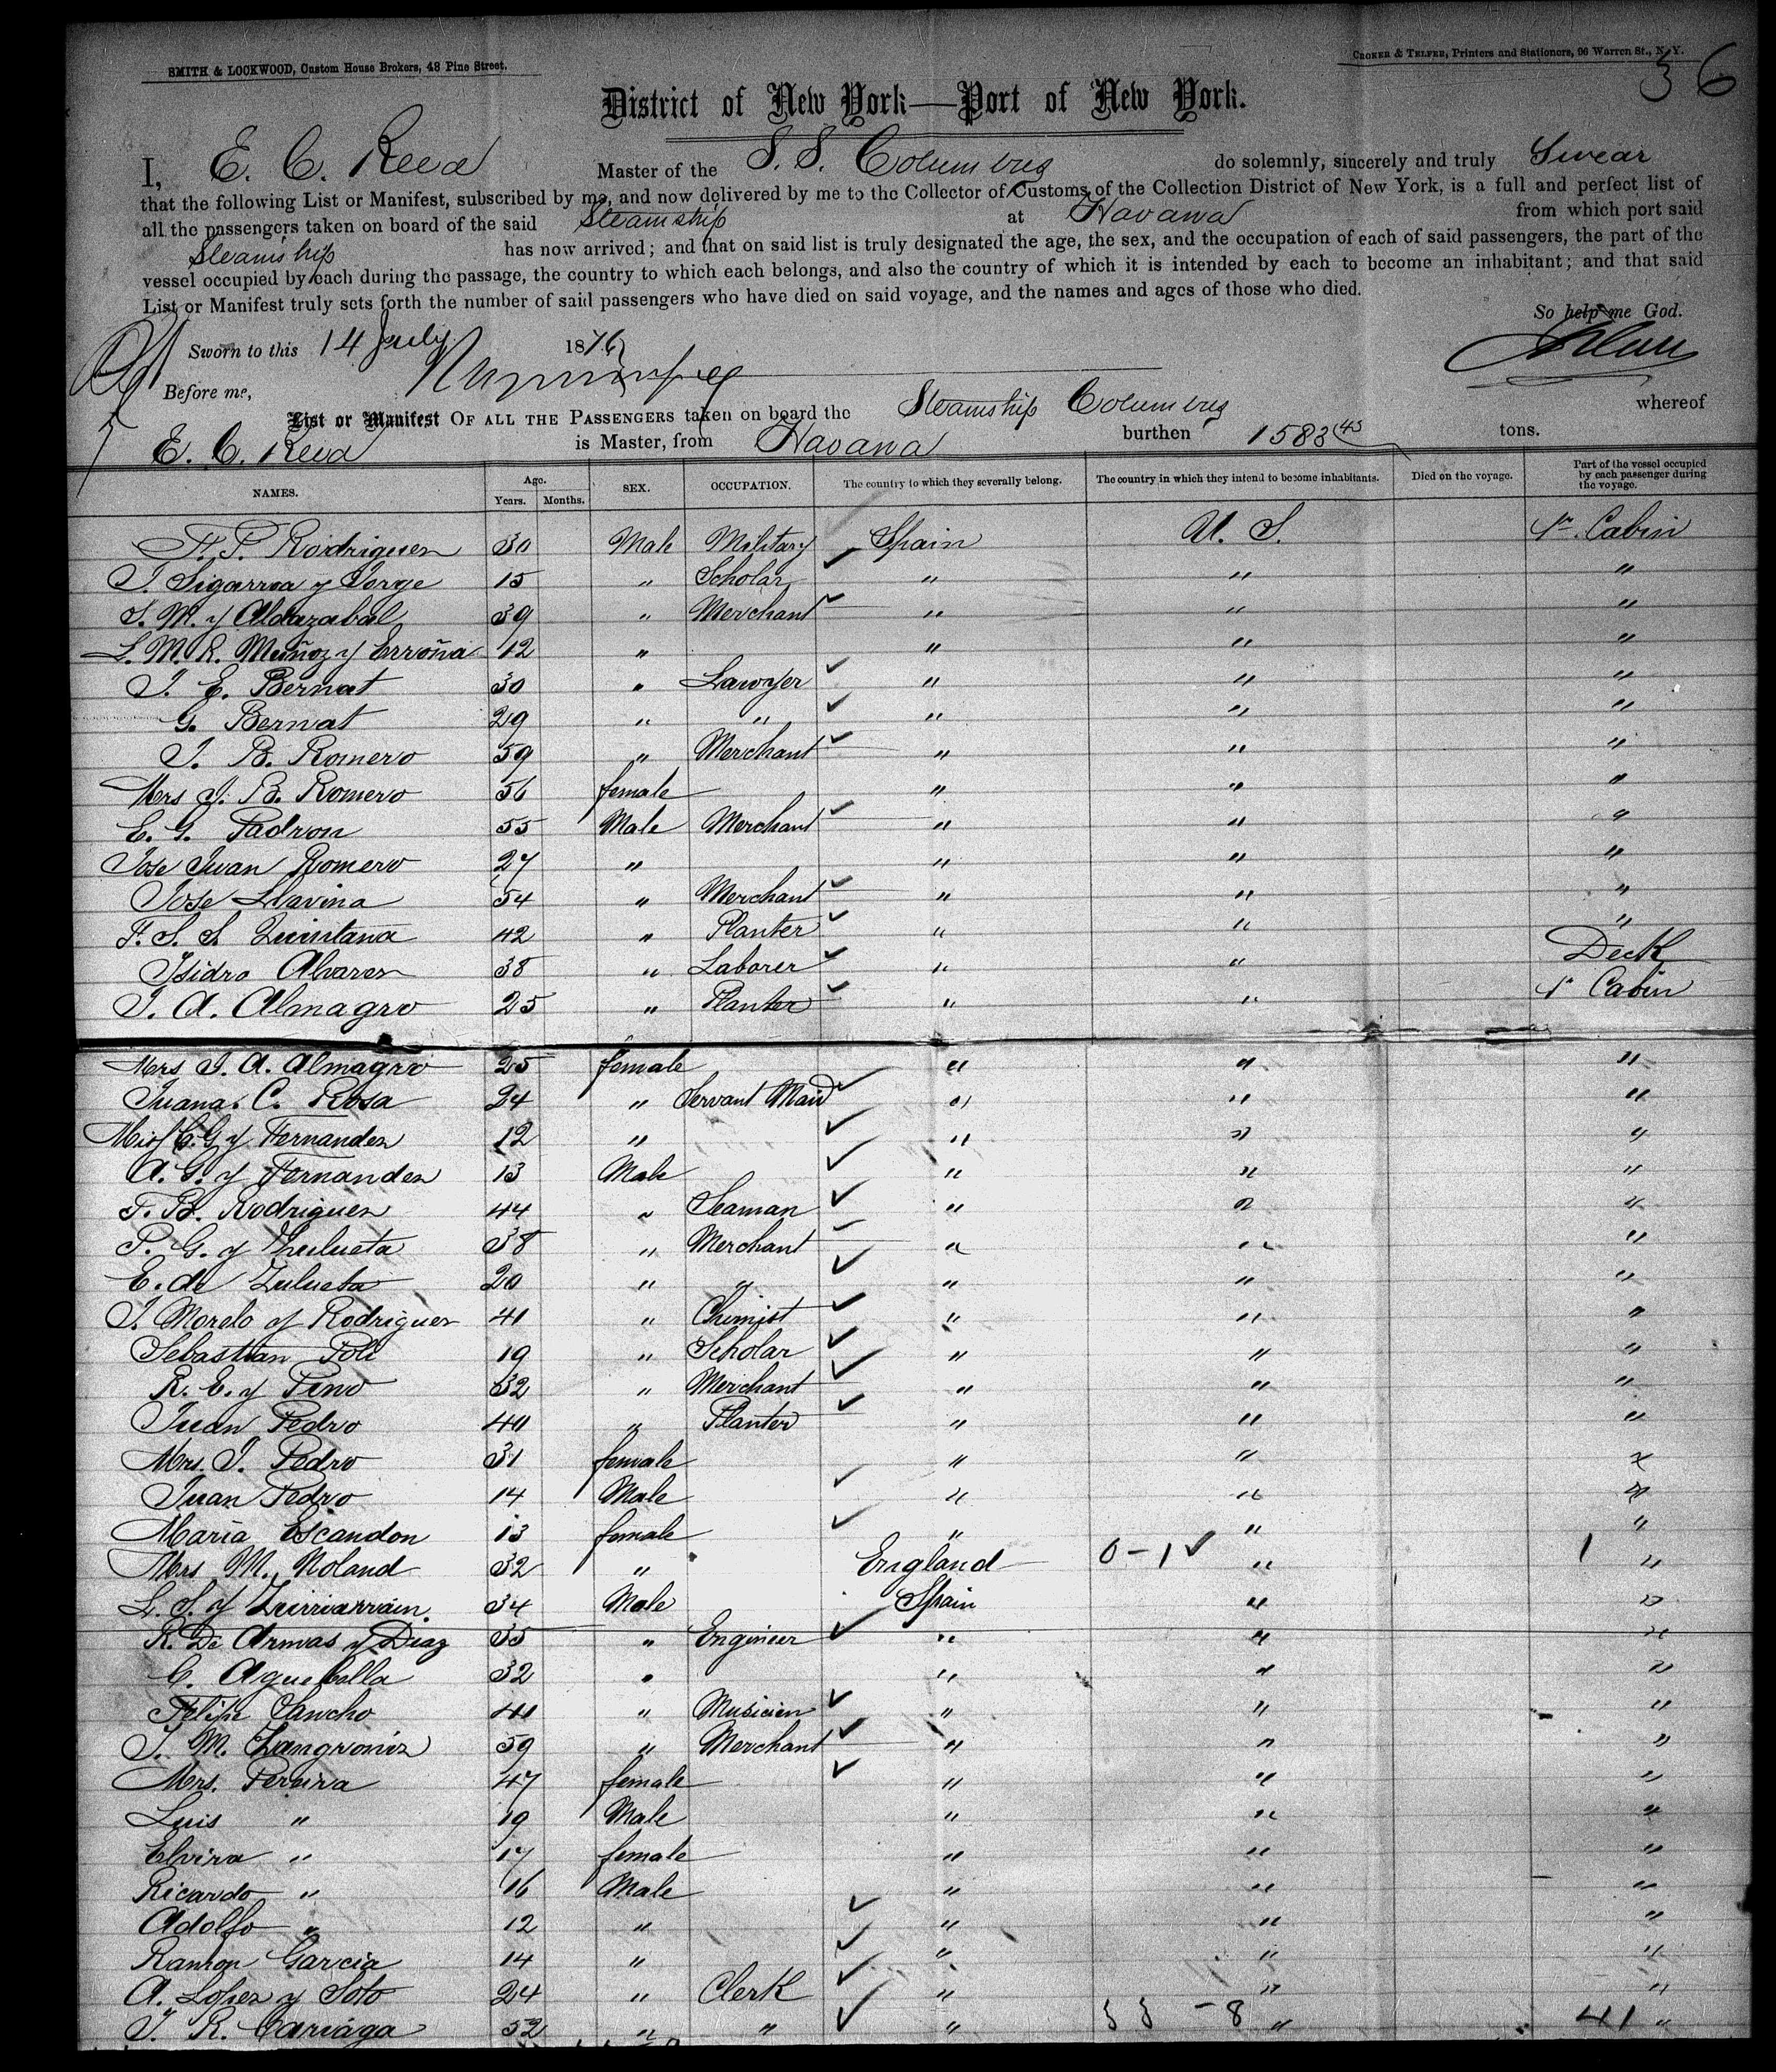 SMITH & LOCKWOOD, Custom House Brokers, 48 Pine Street.
CROKER & TELFER, Printers and Stationers, 96 Warren St., N. Y.
36
District of New York—Port of New York.
I, E. C. Reed Master of the S. S. Columbus do solemnly, sincerely and truly Swear
that the following List or Manifest, subscribed by me, and now delivered by me to the Collector of Customs of the Collection District of New York, is a full and perfect list of
all the passengers taken on board of the said Steamship at Havana from which port said
Steamship has now arrived; and that on said list is truly designated the age, the sex, and the occupation of each of said passengers, the part of the
vessel occupied by each during the passage, the country to which each belongs, and also the country of which it is intended by each to become an inhabitant; and that said
List or Manifest truly sets forth the number of said passengers who have died on said voyage, and the names and ages of those who died.
So help me God.
Sworn to this 14 July 1876
Before me,
List or Manifest OF ALL THE PASSENGERS taken on board the Steamship Columbus whereof
E. C. Reed is Master, from Havana burthen 1583 43 tons.
NAMES. Age. Years. Months. SEX. OCCUPATION. The country to which they severally belong. The country in which they intend to become inhabitants. Died on the voyage. Part of the vessel occupied by each passenger during the voyage.
F. P. Rodriguez 30 Male Military Spain U. S. 1st Cabin
J. Sigarroa y Jorge 15 " Scholar " " "
S. M. y Aldazabal 39 " Merchant " " "
L. M. R. Muñoz y Erroña 12 " " " "
J. E. Bernat 30 " Lawyer " " "
G. Bernat 29 " " " " "
J. B. Romero 59 " Merchant " " "
Mrs J. B. Romero 56 female " " "
E. G. Padron 55 Male Merchant " " "
Jose Juan Romero 27 " " " "
Jose Llavina 54 " Merchant " " "
F. S. S. Quintana 42 " Planter " " "
Isidro Alvarez 38 " Laborer " " Deck
J. A. Almagro 25 " Planter " " 1st Cabin
Mrs J. A. Almagro 25 female " " "
Juana C. Rosa 24 " Servant Maid " " "
Miss C. G. y Fernandez 12 " " " "
A. G. y Fernandez 13 Male " " "
F. B. Rodriguez 44 " Seaman " " "
P. G. y Zulueta 38 " Merchant " " "
E. de Zulueta 20 " " " " "
J. Morelo y Rodriguez 41 " Chimist " " "
Sebastian Poli 19 " Scholar " " "
R. E. y Pino 32 " Merchant " " "
Juan Pedro 40 " Planter " " "
Mrs. J. Pedro 31 female " " "
Juan Pedro 14 Male " " "
Maria Escandon 13 female " " "
Mrs M. Noland 32 " England 0-1 " 1 "
L. S. y Zurriarrain 34 Male Spain " "
R. De Armas y Diaz 35 " Engineer " " "
C. Aguebella 32 " " " "
Felipe Sancho 40 " Musician " " "
J. M. Zangroniz 59 " Merchant " " "
Mrs. Pereira 47 female " " "
Luis " 19 Male " " "
Elvira " 17 female " " "
Ricardo " 16 Male " " "
Adolfo " 12 " " " "
Ramon Garcia 14 " " " "
A. Lopez y Soto 24 " Clerk " " "
J. R. Cariaga 52 " " " - 8 " 41 "